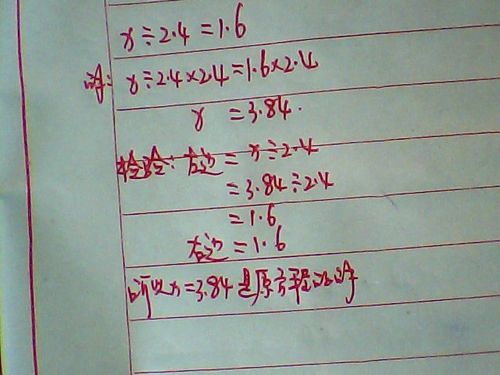 x÷2.4=1.6
解: x÷2.4×2.4=1.6×2.4
x =3.84.
检验: 左边= x÷2.4
=3.84÷2.4
=1.6
右边=1.6
所以x=3.84是原方程的解